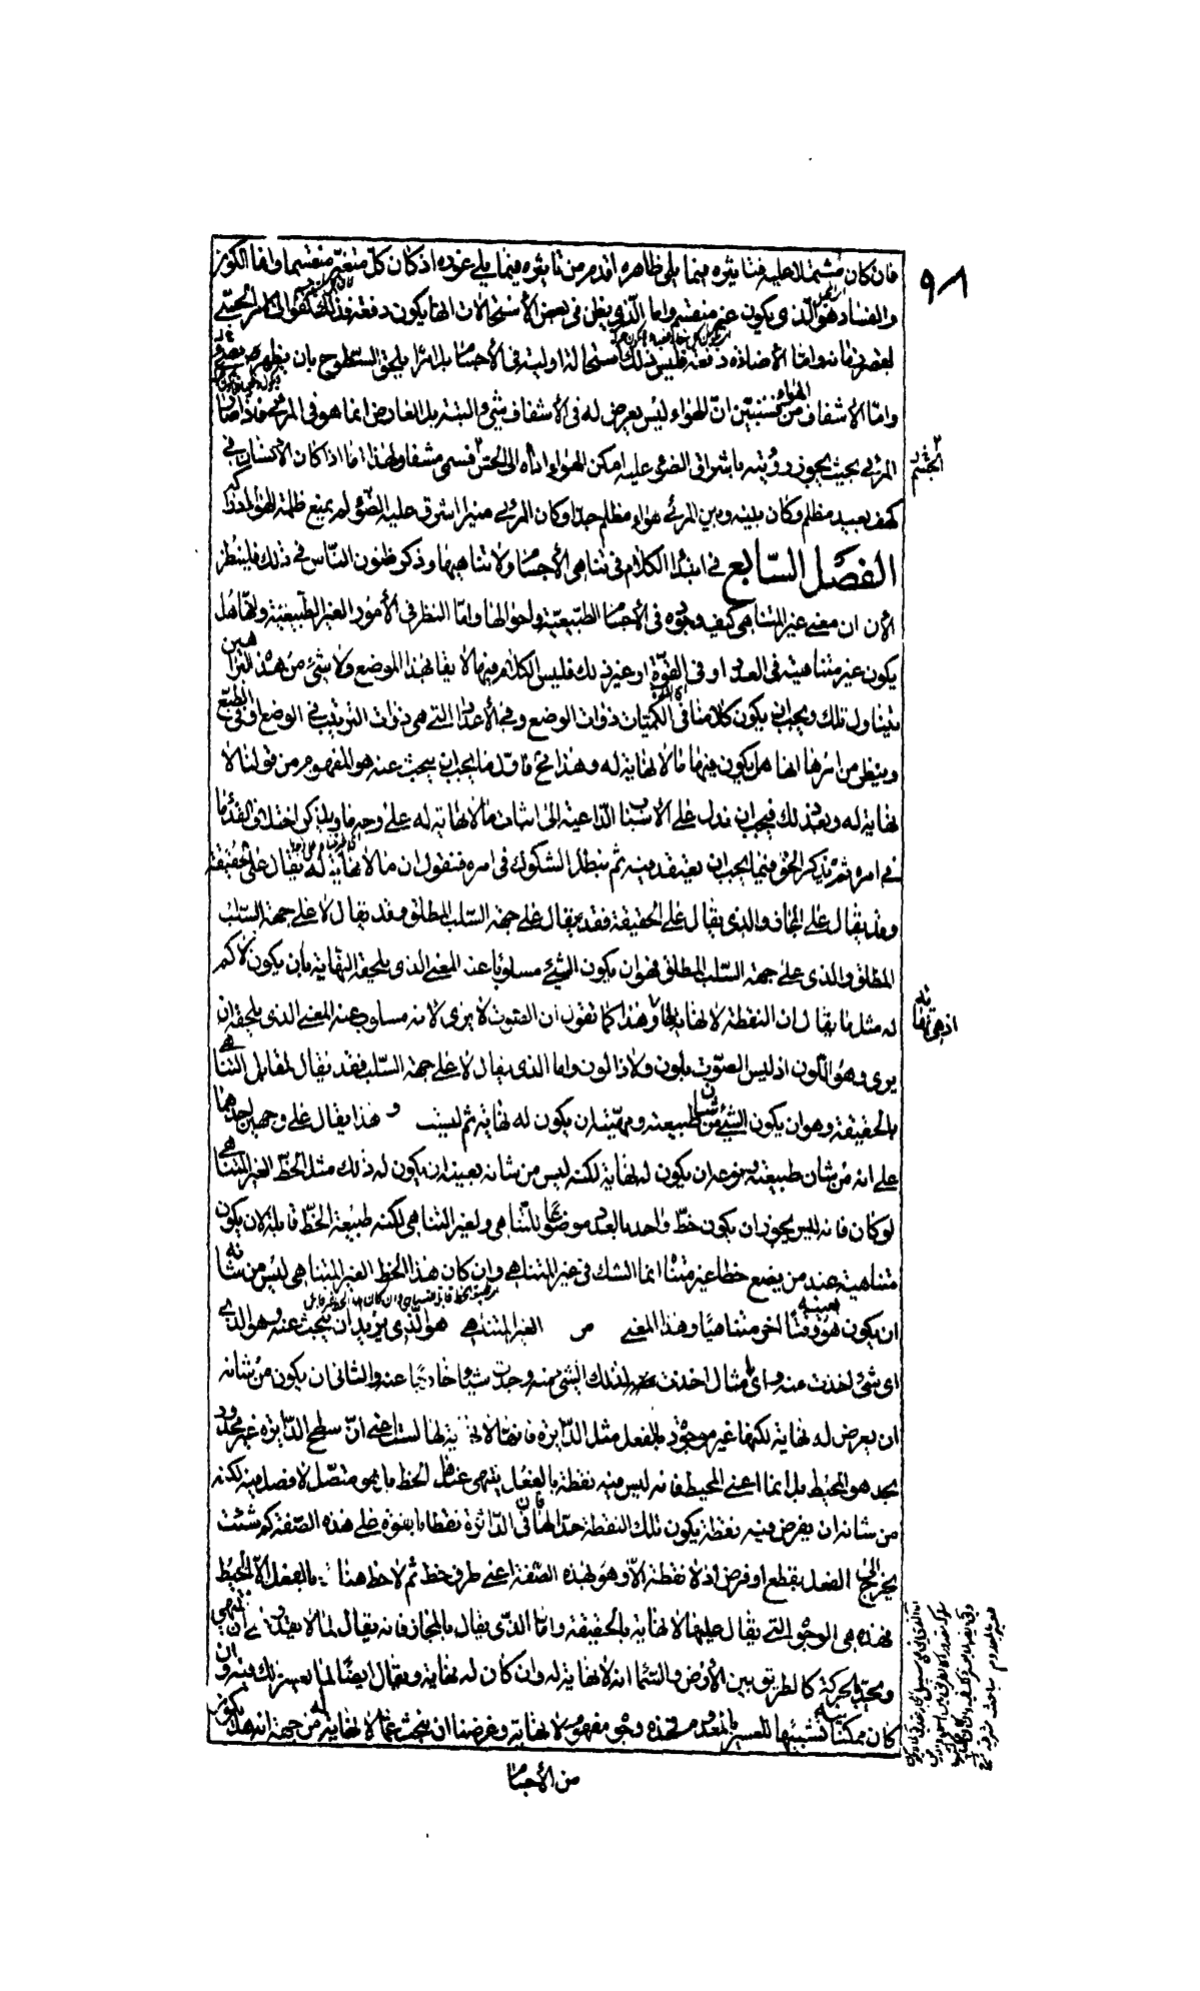 ٩٨
فان كان مشتملا عليه فتاثيره فيما يلى ظاهره اقدم من تاثيره فيما يلى غوره اذ كان كل متغير منقسما واما الكون
والفساد هو الذى يكون غير منقسم واما الذى يظن فى بعض الاستحالات انها يكون دفعة فذلك
واما الاضاءة دفعة فليس ذلك استحالة اولية فى الاجسام بل امرا يلحق السطوح بان يظهر
واما الاشفاف فستبين ان الهواء ليس يعرض له فى الاشفاف شئ البتة بل العارض انما هو فى المرئى فاذا صار
المرئى بحيث يجوز رؤيته باشراق الضوء عليه امكن الهواء اداه الى الحس فسمى مشفا ولهذا اما اذا كان الانسان فى
كهف بعيد مظلم وكان بينه وبين المرئى هواء مظلم جدا وكان المرئى منيرا اشرق عليه الضوء لم يمنع ظلمة الهواء
الفصل السابع فى ابتداء الكلام فى تناهى الاجسام ولا تناهيها وذكر ظنون الناس فى ذلك فلينظر
الان ان معنى غير المتناهى كيف وجوده فى الاجسام الطبيعية واحوالها واما النظر فى الامور الغير الطبيعية وانها هل
يكون غير متناهية فى العدد او فى القوة او غير ذلك فليس الكلام فيها لايقا بهذا الموضع ولا شئ من هذه البراهين
يتناول تلك ويجب ان يكون كلامنا فى الكميات ذوات الوضع وفى الاعداد التى هى ذوات الترتيب فى الوضع او فى الطبع
وينظر من امرها انها هل يكون فيها ما لا نهاية له وهذا نحو واول ما يجب ان يبحث عنه هو المفهوم من قولنا لا
نهاية له وبعد ذلك فيجب ان ندل على الاسباب الداعية الى اثبات ما لا نهاية له على وجه ما ويذكر اختلاف القدماء
فى امره ثم يذكر الحق فيما يجب ان يعتقد فيه ثم يبطل الشكوك فى امره فنقول ان ما لا نهاية له يقال على الحقيقة
وقد يقال على المجاز والذى يقال على الحقيقة فقد يقال على جهة السلب المطلق وقد يقال لا على جهة السلب
المطلق والذى على جهة السلب المطلق فهو ان يكون الشئ مسلوبا عنه المعنى الذى يلحقه النهاية بان يكون لا كم
له مثل ما يقال ان النقطة لا نهاية لها وهذا كما نقول ان الصوت لا يرى لانه مسلوب عنه المعنى الذى يلحقه ان
يرى وهو اللون اذ ليس الصوت بلون ولا ذا لون واما الذى يقال لا على جهة السلب فقد يقال لمقابل التناهى
بالحقيقة وهو ان يكون الشئ من شان طبيعته وماهيته ان يكون له نهاية ثم ليست وهذا يقال على وجهين احدهما
على انه من شان طبيعته نوعه ان يكون له نهاية لكنه ليس من شانه بعينه ان يكون له ذلك مثل الخط الغير المتناهى
لو كان فانه ليس يجوز ان يكون خط واحد بالعدد موضوعا للتناهى ولغير التناهى لكنه طبيعة الخط قابلة لان يكون
متناهية عند من يضع خطا غير متناه انما الشك فى غير المتناهى وان كان هذا الخط الغير المتناهى ليس من شانه
ان يكون هو بعينه وقتا اخر متناهيا وهذا المعنى من الغير المتناهى هو الذى نريد ان نبحث عنه وهو الذى
اى شئ اخذت منه واى مثال اخذت لذلك الشئ منه وجدت شيئا خارجا عنه والثانى ان يكون من شانه
ان يعرض له نهاية لكنها غير موجودة بالفعل مثل الدائرة فانها لا نهاية لها لست اعنى ان سطح الدائرة غير محدود
بحد هو المحيط بل انما اعنى المحيط فانه ليس فيه نقطة بالفعل ينتهى عندها الخط بل هو متصل لا فصل فيه لكنه
من شانه ان يفرض فيه نقطة يكون تلك النقطة حدا لها فان فى الدائرة نقطا بالقوة على هذه الصفة كم شئت
يخرج الى الفعل بقطع او فرض اذ لا نقطة الا وهو لهذه الصفة اعنى طرف خط ثم لا خط هنا بالفعل الا المحيط
فهذه هى الوجوه التى يقال عليها لا نهاية بالحقيقة واما الذى يقال بالمجاز فانه يقال لما لا يقدر ان ينتهى
ويحد بالحركة كالطريق بين الارض والسماء انه لا نهاية له وان كان له نهاية ويقال ايضا لما يعسر ذلك فيه وان
كان ممكنا تشبيها للعسير بالمعدوم فهذه وجوه مفهوم لا نهاية وغرضنا ان نبحث عما لا نهاية له من جهة انه هل يكون
من الاجسام